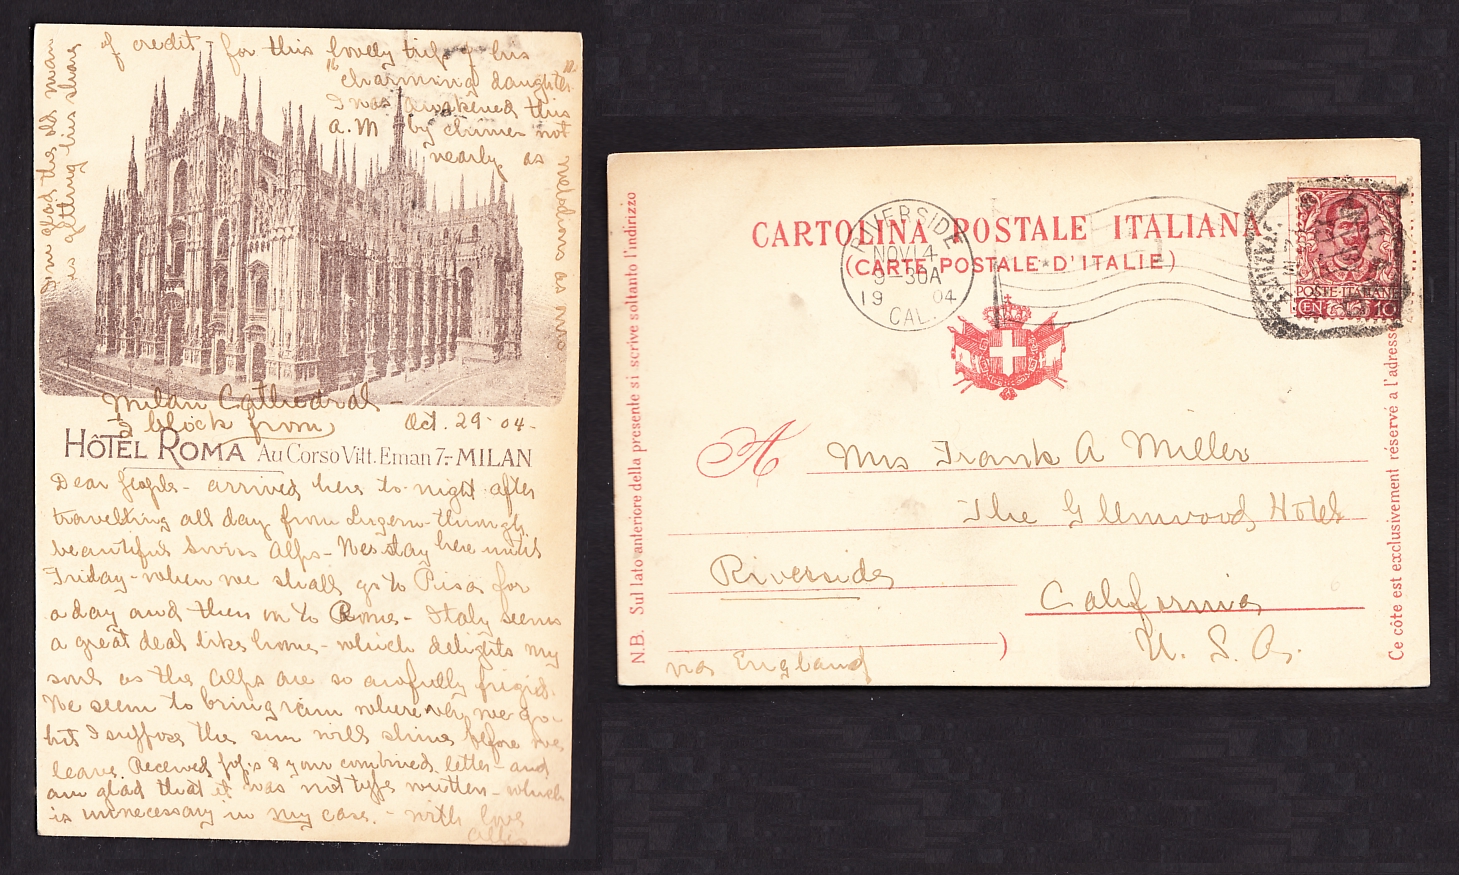 of credit - for this lovely trip of his
"charming daughter"
I was awakened this
A.M by chimes not
nearly as
melodious as
I'm glad the old man
is getting his share
Milan Cathedral -
½ block from
Oct. 29 - 04 -
HÔTEL ROMA Au Corso Vitt. Eman 7.- MILAN
Dear people - arrived here to-night after
travelling all day from Luzern - through
beautiful Swiss Alps - We stay here until
Friday - when we shall go to Pisa for
a day and then on to Rome - Italy seems
a great deal like home - which delights my
soul as the Alps are so awfully frigid.
We seem to bring rain where ever we go -
but I suppose the sun will shine before we
leave. Received pop's & your combined letter - and
am glad that it was not type written - which
is unnecessary in my case. - with love
CARTOLINA POSTALE ITALIANA
(CARTE POSTALE D'ITALIE)
RIVERSIDE
NOV 14
30A
19 04
CAL.
POSTE ITALIANE
CEN. 10
N.B. Sul lato anteriore della presente si scrive soltanto l'indirizzo
Ce côte est exclusivement réservé a l'adresse
A Mrs Frank A Miller
The Glenwood Hotel
Riverside
California
U. S. A.
via England